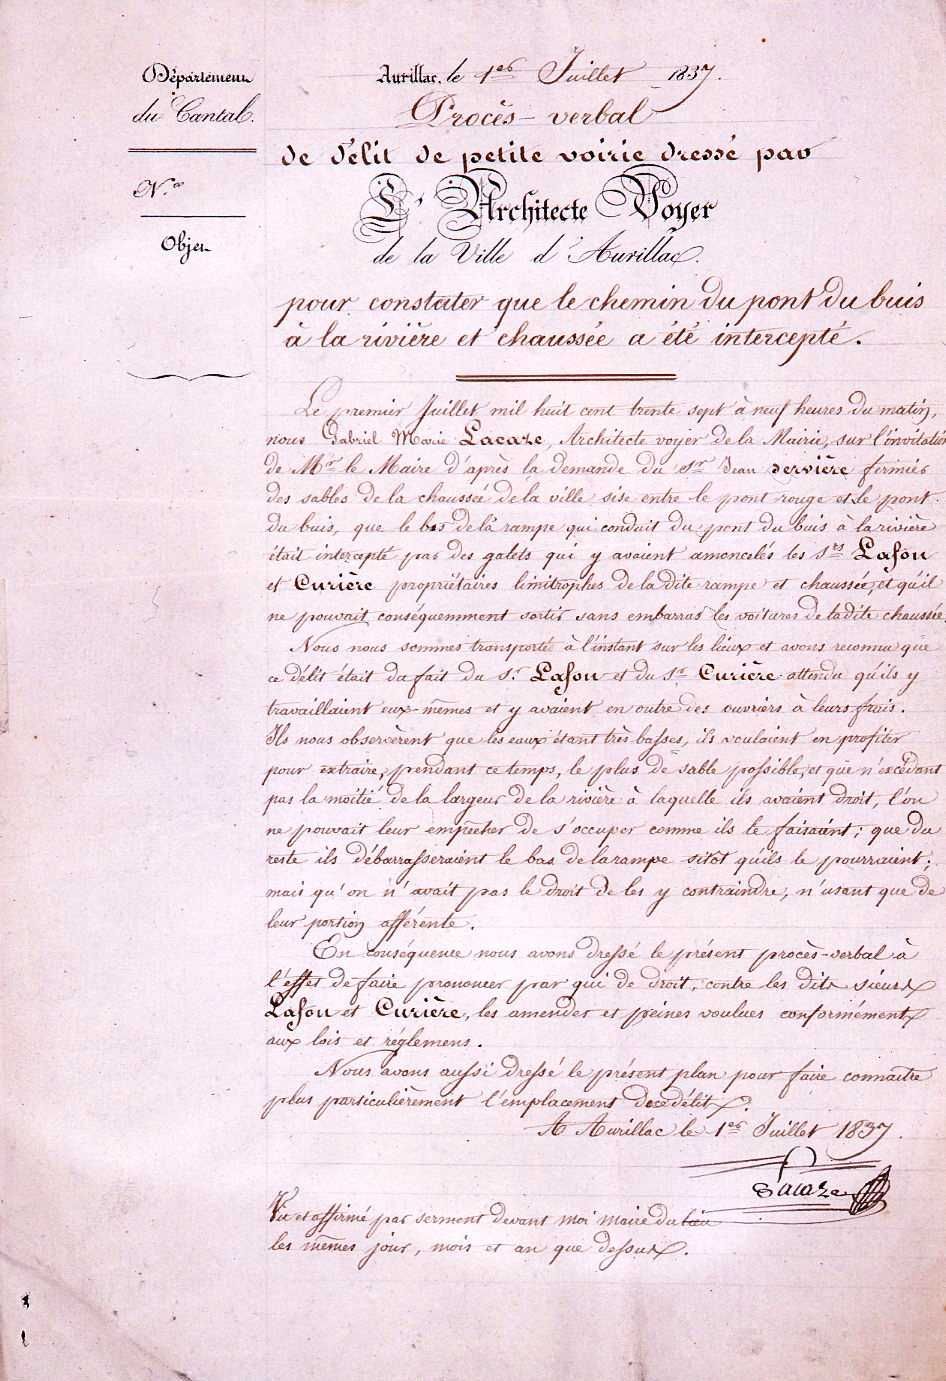 Département
du Cantal.
N.º
Objet
Aurillac, le 1er Juillet 1837.
Procès-verbal
de délit de petite voirie dressé par
L'Architecte Voyer
de la Ville d'Aurillac.
pour constater que le chemin du pont du buis
à la rivière et chaussée a été intercepté.
Le premier Juillet mil huit cent trente sept à neuf heures du matin,
nous Gabriel Marie Lacaze, Architecte voyer de la Mairie, sur l'invitation
de Mr le Maire d'après la demande du sr Jean Servière fermier
des sables de la chaussée de la ville sise entre le pont rouge et le pont
du buis, que le bas de la rampe qui conduit du pont du buis à la rivière
était intercepté par des galets qui y avaient amoncelés les srs Lafon
et Curière propriétaires limitrophes de la dite rampe et chaussée, et qu'il
ne pouvait conséquemment sortir sans embarras les voitures de la dite chaussée.
Nous nous sommes transporté à l'instant sur les lieux et avons reconnu que
ce délit était du fait du sr. Lafon et du sr Curière attendu qu'ils y
travaillaient eux-mêmes et y avaient en outre des ouvriers à leurs frais.
Ils nous observèrent que les eaux étant très basses, ils voulaient en profiter
pour extraire, pendant ce temps, le plus de sable possible, et que n'excédant
pas la moitié de la largeur de la rivière à laquelle ils avaient droit, l'on
ne pouvait leur empêcher de s'occuper comme ils le faisaient; que du
reste ils débarrasseraient le bas de la rampe sitôt qu'ils le pourraient;
mais qu'on n'avait pas le droit de les y contraindre, n'usant que de
leur portion afférente.
En conséquence nous avons dressé le présent procès-verbal à
l'effet de faire prononcer par qui de droit, contre les dits sieurs
Lafon et Curière, les amendes et peines voulues conformément
aux lois et réglemens.
Nous avons aussi dressé le présent plan pour faire connaître
plus particulièrement l'emplacement de ce délit.
A Aurillac le 1er Juillet 1837.
Lacaze
Vu et affirmé par serment devant moi maire du lieu
les mêmes jour, mois et an que dessus.